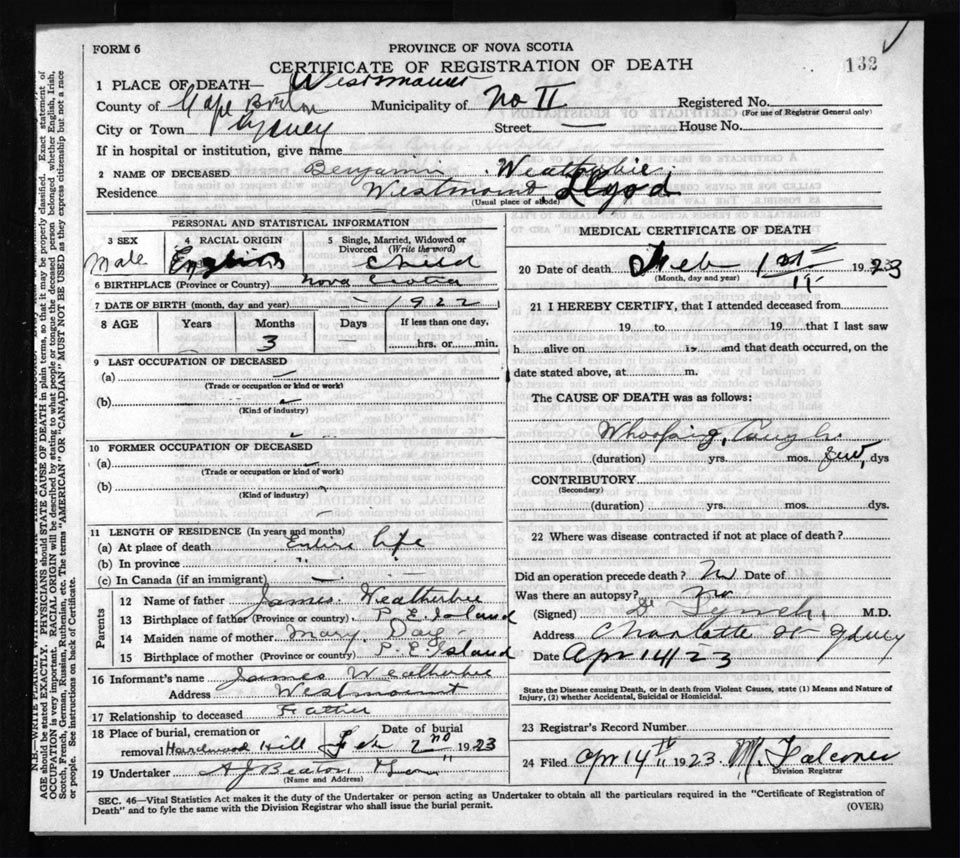 FORM 6
PROVINCE OF NOVA SCOTIA
CERTIFICATE OF REGISTRATION OF DEATH
132
1 PLACE OF DEATH— Westmount
County of Cape Breton Municipality of No II Registered No.
(For use of Registrar General only)
City or Town Sydney Street — House No.
If in hospital or institution, give name
2 NAME OF DECEASED Benjamin Weatherbie
Residence Westmount
(Usual place of abode)
PERSONAL AND STATISTICAL INFORMATION
3 SEX
Male
4 RACIAL ORIGIN
English
5 Single, Married, Widowed or Divorced (Write the word)
Child
6 BIRTHPLACE (Province or Country) Nova Scotia
7 DATE OF BIRTH (month, day and year) - 1922
8 AGE Years Months Days If less than one day,
3 hrs. or min.
9 LAST OCCUPATION OF DECEASED
(a)
(Trade or occupation or kind or work)
(b)
(Kind of industry)
10 FORMER OCCUPATION OF DECEASED
(a)
(Trade or occupation or kind of work)
(b)
(Kind of industry)
11 LENGTH OF RESIDENCE (In years and months)
(a) At place of death Entire life
(b) In province " "
(c) In Canada (if an immigrant) —
Parents
12 Name of father James Weatherbie
13 Birthplace of father (Province or country) P. E. Island
14 Maiden name of mother Mary Day
15 Birthplace of mother (Province or country) P. E Island
16 Informant's name James Weatherbie
Address Westmount
17 Relationship to deceased Father
18 Place of burial, cremation or removal Hardwood Hill
Date of burial Feb 2nd 1923
19 Undertaker A J Beaton & Son
(Name and Address)
MEDICAL CERTIFICATE OF DEATH
20 Date of death Feb 1st 1923
(Month, day and year)
21 I HEREBY CERTIFY, that I attended deceased from
19 to 19 that I last saw
h alive on 19 and that death occurred, on the
date stated above, at m.
The CAUSE OF DEATH was as follows:
Whooping Cough
(duration) yrs. mos. few dys
CONTRIBUTORY
(Secondary)
(duration) yrs. mos. dys.
22 Where was disease contracted if not at place of death?
Did an operation precede death? No Date of
Was there an autopsy? No
(Signed) Dr Lynch M.D.
Address Charlotte St Sydney
Date Apr 14 23
State the Disease causing Death, or in death from Violent Causes, state (1) Means and Nature of Injury, (2) whether Accidental, Suicidal or Homicidal.
23 Registrar's Record Number
24 Filed Apr 14th 1923 M. Falconer
Division Registrar
SEC. 46—Vital Statistics Act makes it the duty of the Undertaker or person acting as Undertaker to obtain all the particulars required in the "Certificate of Registration of
Death" and to fyle the same with the Division Registrar who shall issue the burial permit. (OVER)
AGE should be stated EXACTLY. PHYSICIANS should STATE CAUSE OF DEATH in plain terms, so that it may be properly classified. Exact statement of
OCCUPATION is very important. RACIAL ORIGIN will be described by stating to what people or tongue the deceased person belonged whether English, Irish,
Scotch, French, German, Russian, Ruthenian, etc. The terms "AMERICAN" OR "CANADIAN" MUST NOT BE USED as they express citizenship but not a race
or people. See instructions on back of Certificate.